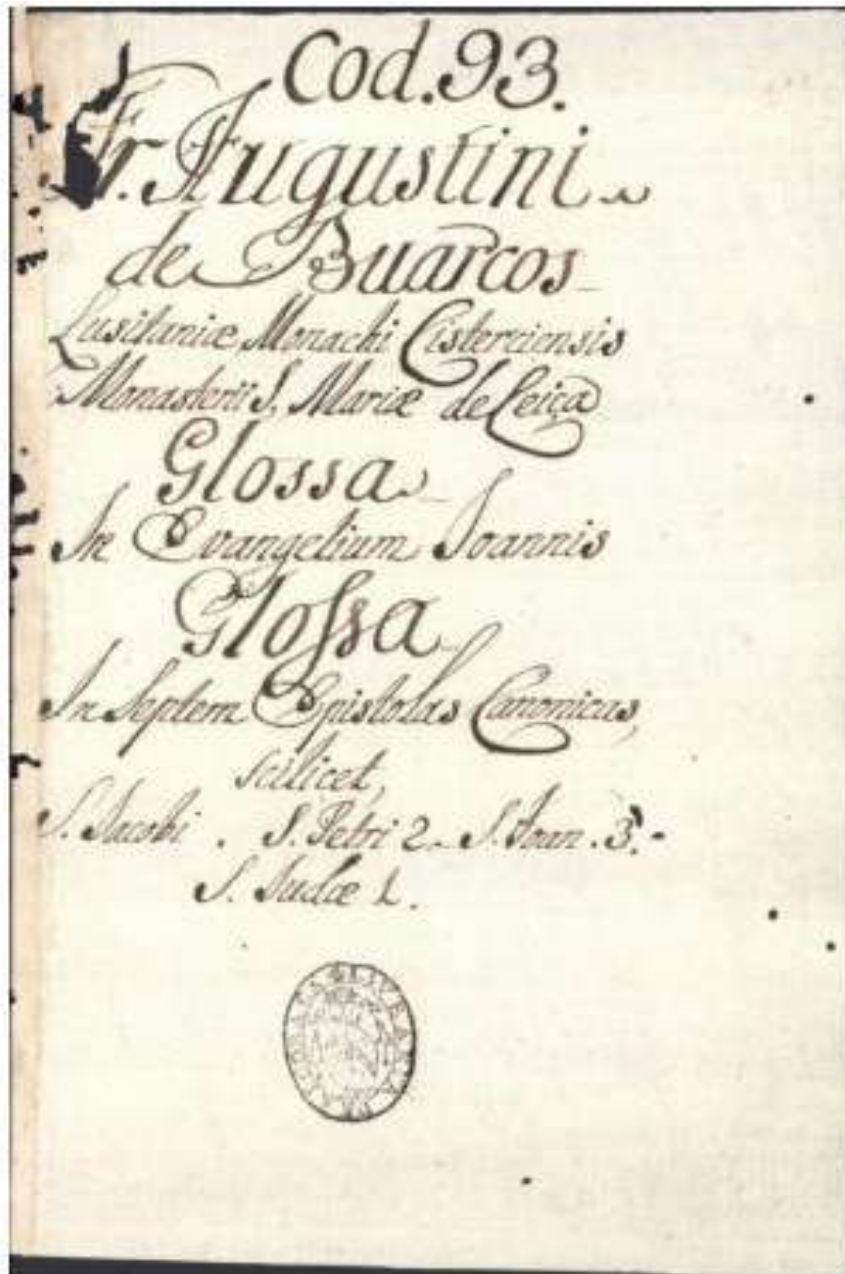 Cod. 93.
Fr. Augustini
de Buarcos
Lusitaniæ, Monachi Cisterciensis
Monasterii S. Mariæ de Ceiça
Glossa
In Evangelium Joannis
Glossa
In Septem Epistolas Canonicas,
scilicet,
S. Jacobi . S. Petri 2. S. Joan. 3.
S. Judæ 1.